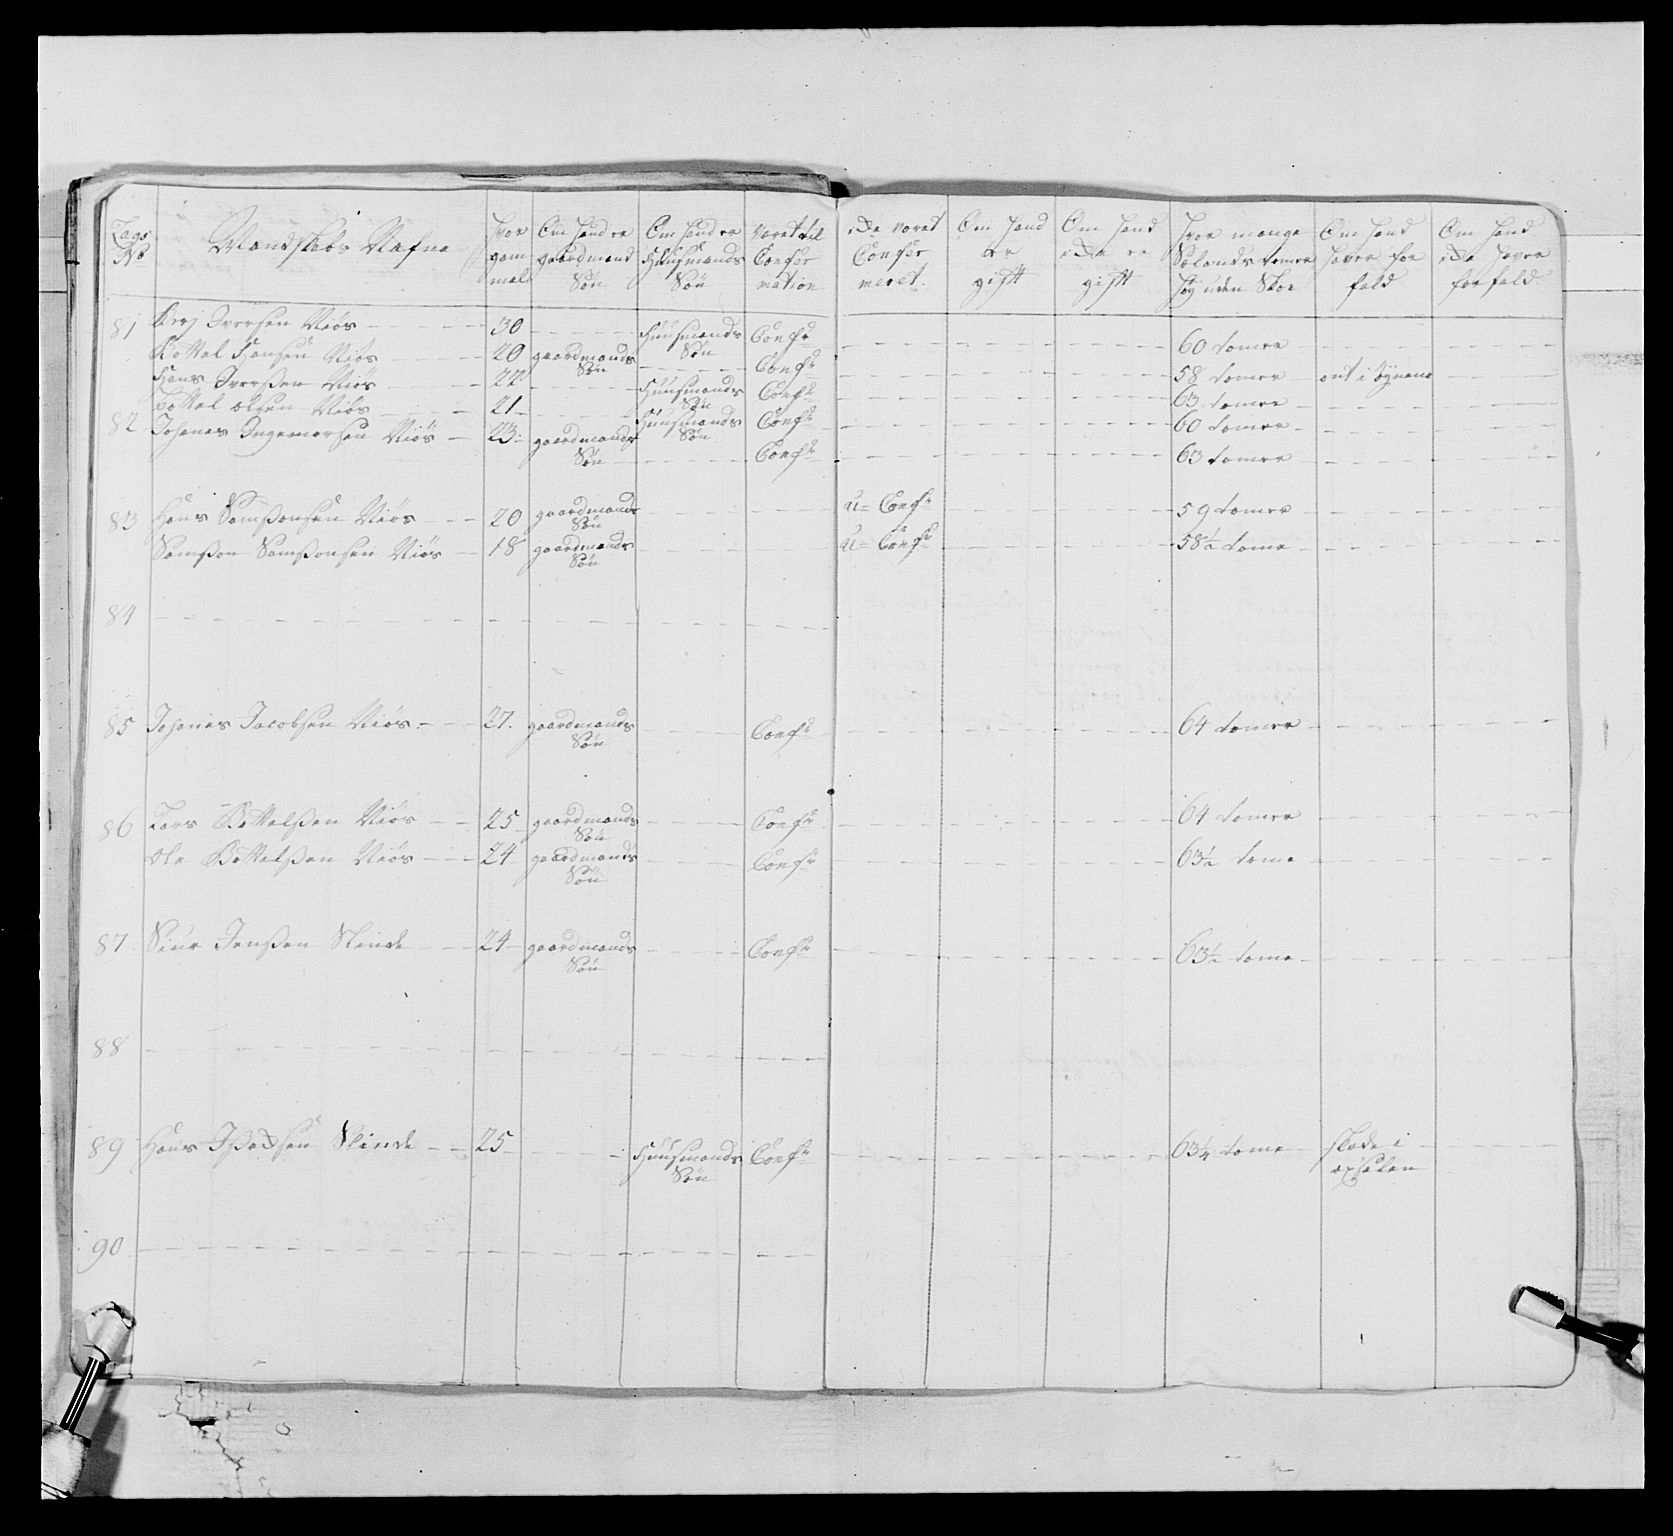 Lags No | Mandskabs Nafne | Hvor gam mel | Om hand er gaardmand Søn | Om hand er Huusmands Søn | været til Confir mation | ikke været Confir meret. | Om hand er gift | Om hand ikke er gift | Hvor mange Sælands tomer høy uden Skoe | Om hand haver for fald | Om hand ikke haver forfald
81 Iversen Niøs 30 Huusmands Søn Confr 60 tomer
Bottel Hansen Niøs 20 gaardmands Søn Confr 58 tomer ont i Øynene
Hans Iverßen Niøs 22 Huusmands Søn Confr 63 tomer
Bottel olsen Niøs 21 Huusmands Søn Confr 60 tomer
82 Johanes Ingemorsen Niøs 23 gaardmands Søn Confr 63 tomer
83 Hans Samßonsen Niøs 20 gaardmands Søn u- Confr 59 tomer
Samßon Samßonsen Niøs 18 gaardmands Søn u- Confr 58½ tome
84
85 Johanes Jacobsen Niøs 27. gaardmands Søn Confr 64 tomer
86 Lars Bottelßen Niøs 25 gaardmands Søn Confr 64 tomer
Ole Bottelßen Niøs 24 gaardmands Søn Confr 63½ tome
87 Siur Jenßen Slinde 24 gaardmands Søn Confr 63½ tome
88
89 Hans Slinde 25 Huusmands Søn Confr 63¼ tome skade i
90